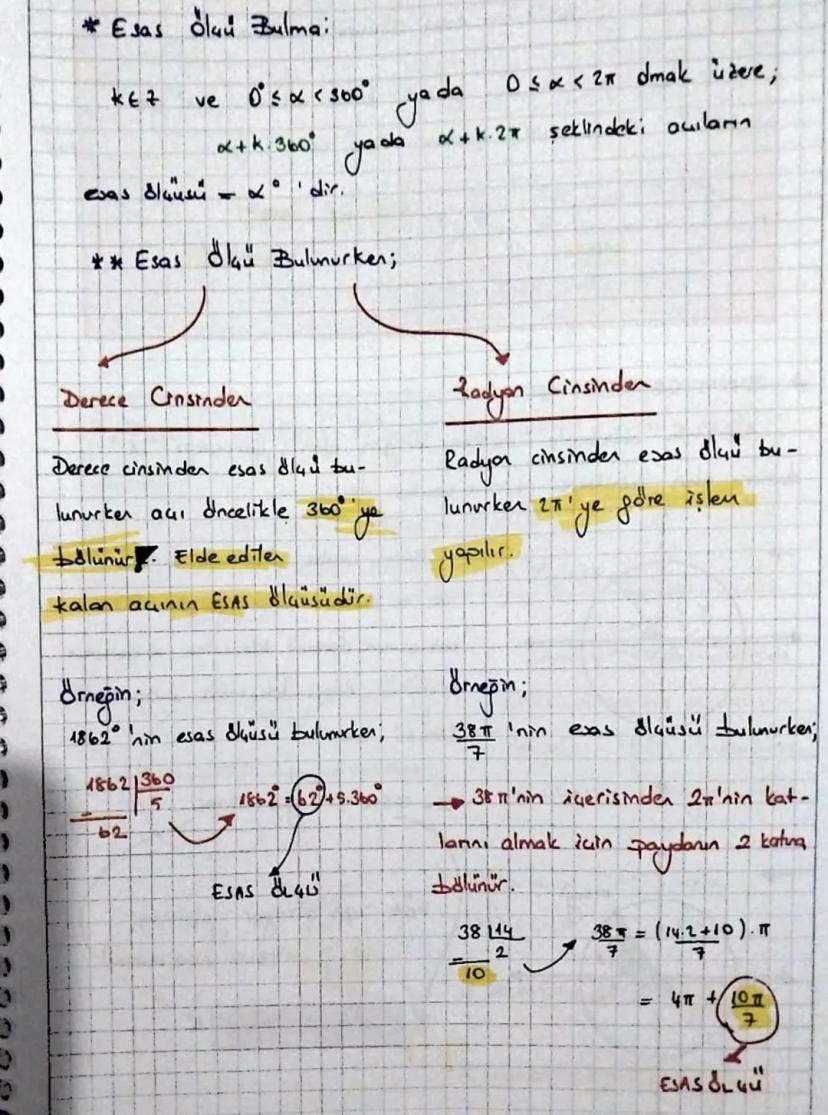 * Esas Ölçü Bulma:
k∈Z ve 0°≤α<360° ya da 0≤α<2π olmak üzere;
α+k.360° ya da α+k.2π şeklindeki açıların
esas ölçüsü = α° 'dir.
** Esas Ölçü Bulunurken;
Derece Cinsinden
Derece cinsinden esas ölçü bu-
lunurken açı öncelikle 360°'ye
bölünür. Elde edilen
kalan açının ESAS ölçüsüdür.
Örneğin;
1862°'nin esas ölçüsü bulunurken;
1862 | 360
- 5
62
1862° = 62° + 5.360°
ESAS ÖLÇÜ
Radyan Cinsinden
Radyan cinsinden esas ölçü bu-
lunurken 2π'ye göre işlem
yapılır.
Örneğin;
38π/7 'nin esas ölçüsü bulunurken;
→ 38π'nin içerisinden 2π'nin kat-
larını almak için paydanın 2 katına
bölünür.
38 | 14
- 2
10
38π/7 = (14.2+10).π/7
= 4π + 10π/7
ESAS ÖLÇÜ